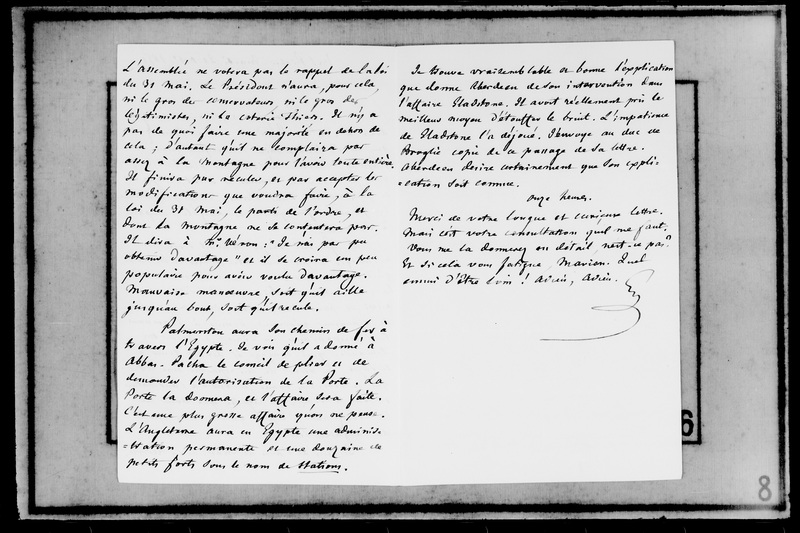 L'assemblée ne votera pas le rappel de la loi
du 31 mai. Le Président n'aura, pour cela,
ni le gros des conservateurs, ni le gros des
légitimistes, ni la coterie Thiers. Il n'y a
pas de quoi faire une majorité en dehors de
cela ; d'autant qu'il ne complaira pas
assez à la Montagne pour l'avoir toute entière.
Il finira par reculer, et par accepter les
modifications que voudra faire, à la
loi du 31 mai, le parti de l'ordre, et
dont la Montagne ne se contentera pas.
Il dira à Mr Véron : "Je n'ai pas pu
obtenir davantage" et il se croira un peu
populaire pour avoir voulu davantage.
Mauvaise manœuvre, soit qu'il aille
jusqu'au bout, soit qu'il recule.
Palmerston aura son chemin de fer à
travers l'Egypte. Je vois qu'il a donné à
Abbas-Pacha le conseil de plier et de
demander l'autorisation de la Porte. La
Porte la donnera, et l'affaire sera faite.
C'est une plus grosse affaire qu'on ne pense.
L'Angleterre aura en Egypte une adminis=
=tration permanente et une douzaine de
petits forts sous le nom de stations.
Je trouve vraisemblable et bonne l'explication
que donne Aberdeen de son intervention dans
l'affaire Gladstone. Il avoit réellement pris le
meilleur moyen d'étouffer le bruit. L'impatience
de Gladstone l'a déjoué. J'envoye au duc de
Broglie copie de ce passage de sa lettre.
Aberdeen desire certainement que son expli=
=cation soit connue.
Onze heures.
Merci de votre longue et curieuse lettre.
Mais c'est votre consultation qu'il me faut.
Vous me la donnerez en détail n'est-ce pas ?
Et si cela vous fatigue, Marion. Quel
ennui d'être loin ! Adieu, adieu.
6
8